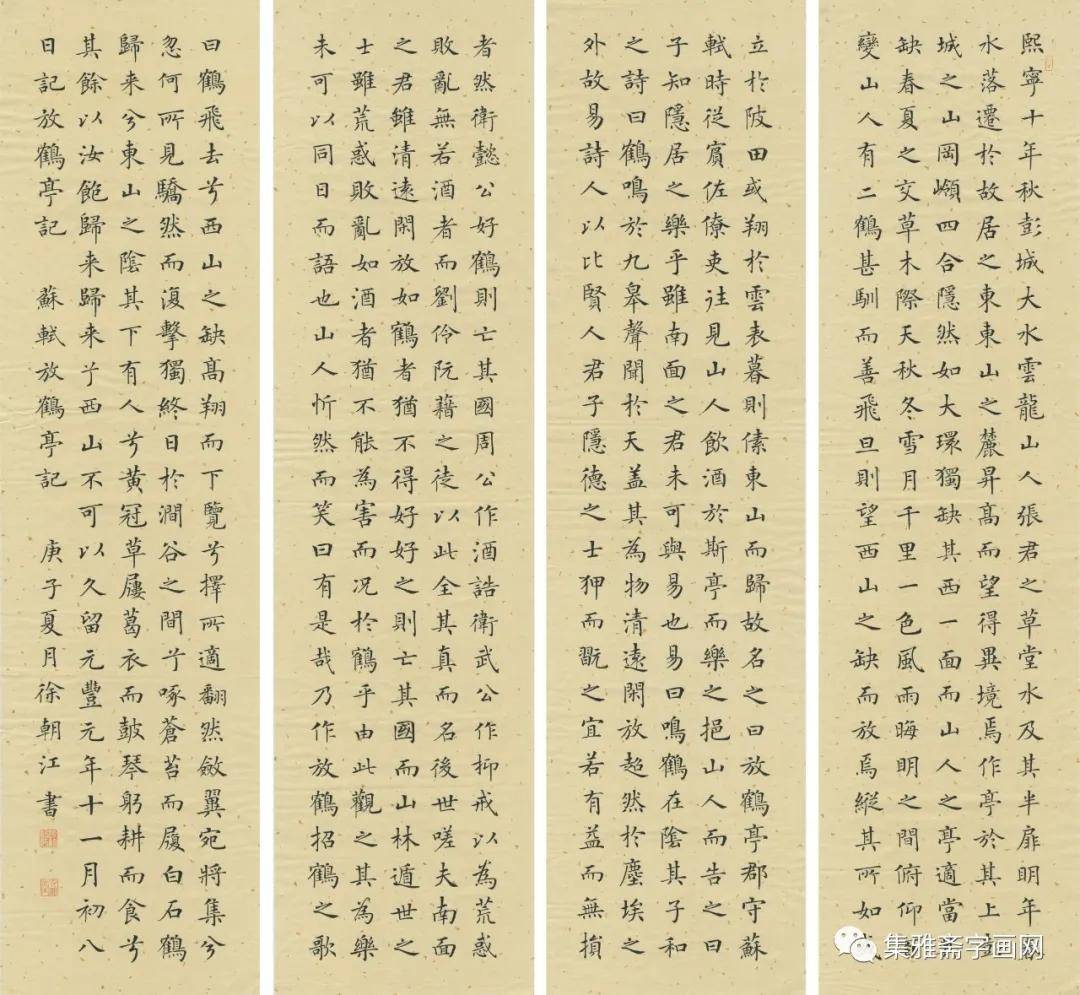 熙寧十年秋彭城大水雲龍山人張君之草堂水及其半扉明年
水落遷於故居之東東山之麓昇高而望得異境焉作亭於其上
城之山岡嶺四合隱然如大環獨缺其西一面而山人之亭適當
缺春夏之交草木際天秋冬雪月千里一色風雨晦明之間俯仰
變山人有二鶴甚馴而善飛旦則望西山之缺而放焉縱其所如或
立於陂田或翔於雲表暮則傃東山而歸故名之曰放鶴亭郡守蘇
軾時從賓佐僚吏往見山人飲酒於斯亭而樂之挹山人而告之曰
子知隱居之樂乎雖南面之君未可與易也易曰鳴鶴在陰其子和
之詩曰鶴鳴於九皋聲聞於天蓋其為物清遠閑放超然於塵埃之
外故易詩人以比賢人君子隱德之士狎而翫之宜若有益而無損
者然衛懿公好鶴則亡其國周公作酒誥衛武公作抑戒以為荒惑
敗亂無若酒者而劉伶阮籍之徒以此全其真而名後世嗟夫南面
之君雖清遠閑放如鶴者猶不得好好之則亡其國而山林遁世之
士雖荒惑敗亂如酒者猶不能為害而況於鶴乎由此觀之其為樂
未可以同日而語也山人忻然而笑曰有是哉乃作放鶴招鶴之歌
曰鶴飛去兮西山之缺高翔而下覽兮擇所適翻然斂翼宛將集兮
忽何所見驕然而復擊獨終日於澗谷之間兮啄蒼苔而履白石鶴
歸来兮東山之陰其下有人兮黃冠草屨葛衣而鼓琴躬耕而食兮
其餘以汝飽歸来歸来兮西山不可以久留元豐元年十一月初八
日記放鶴亭記 蘇軾放鶴亭記 庚子夏月徐朝江書
集雅斋字画网